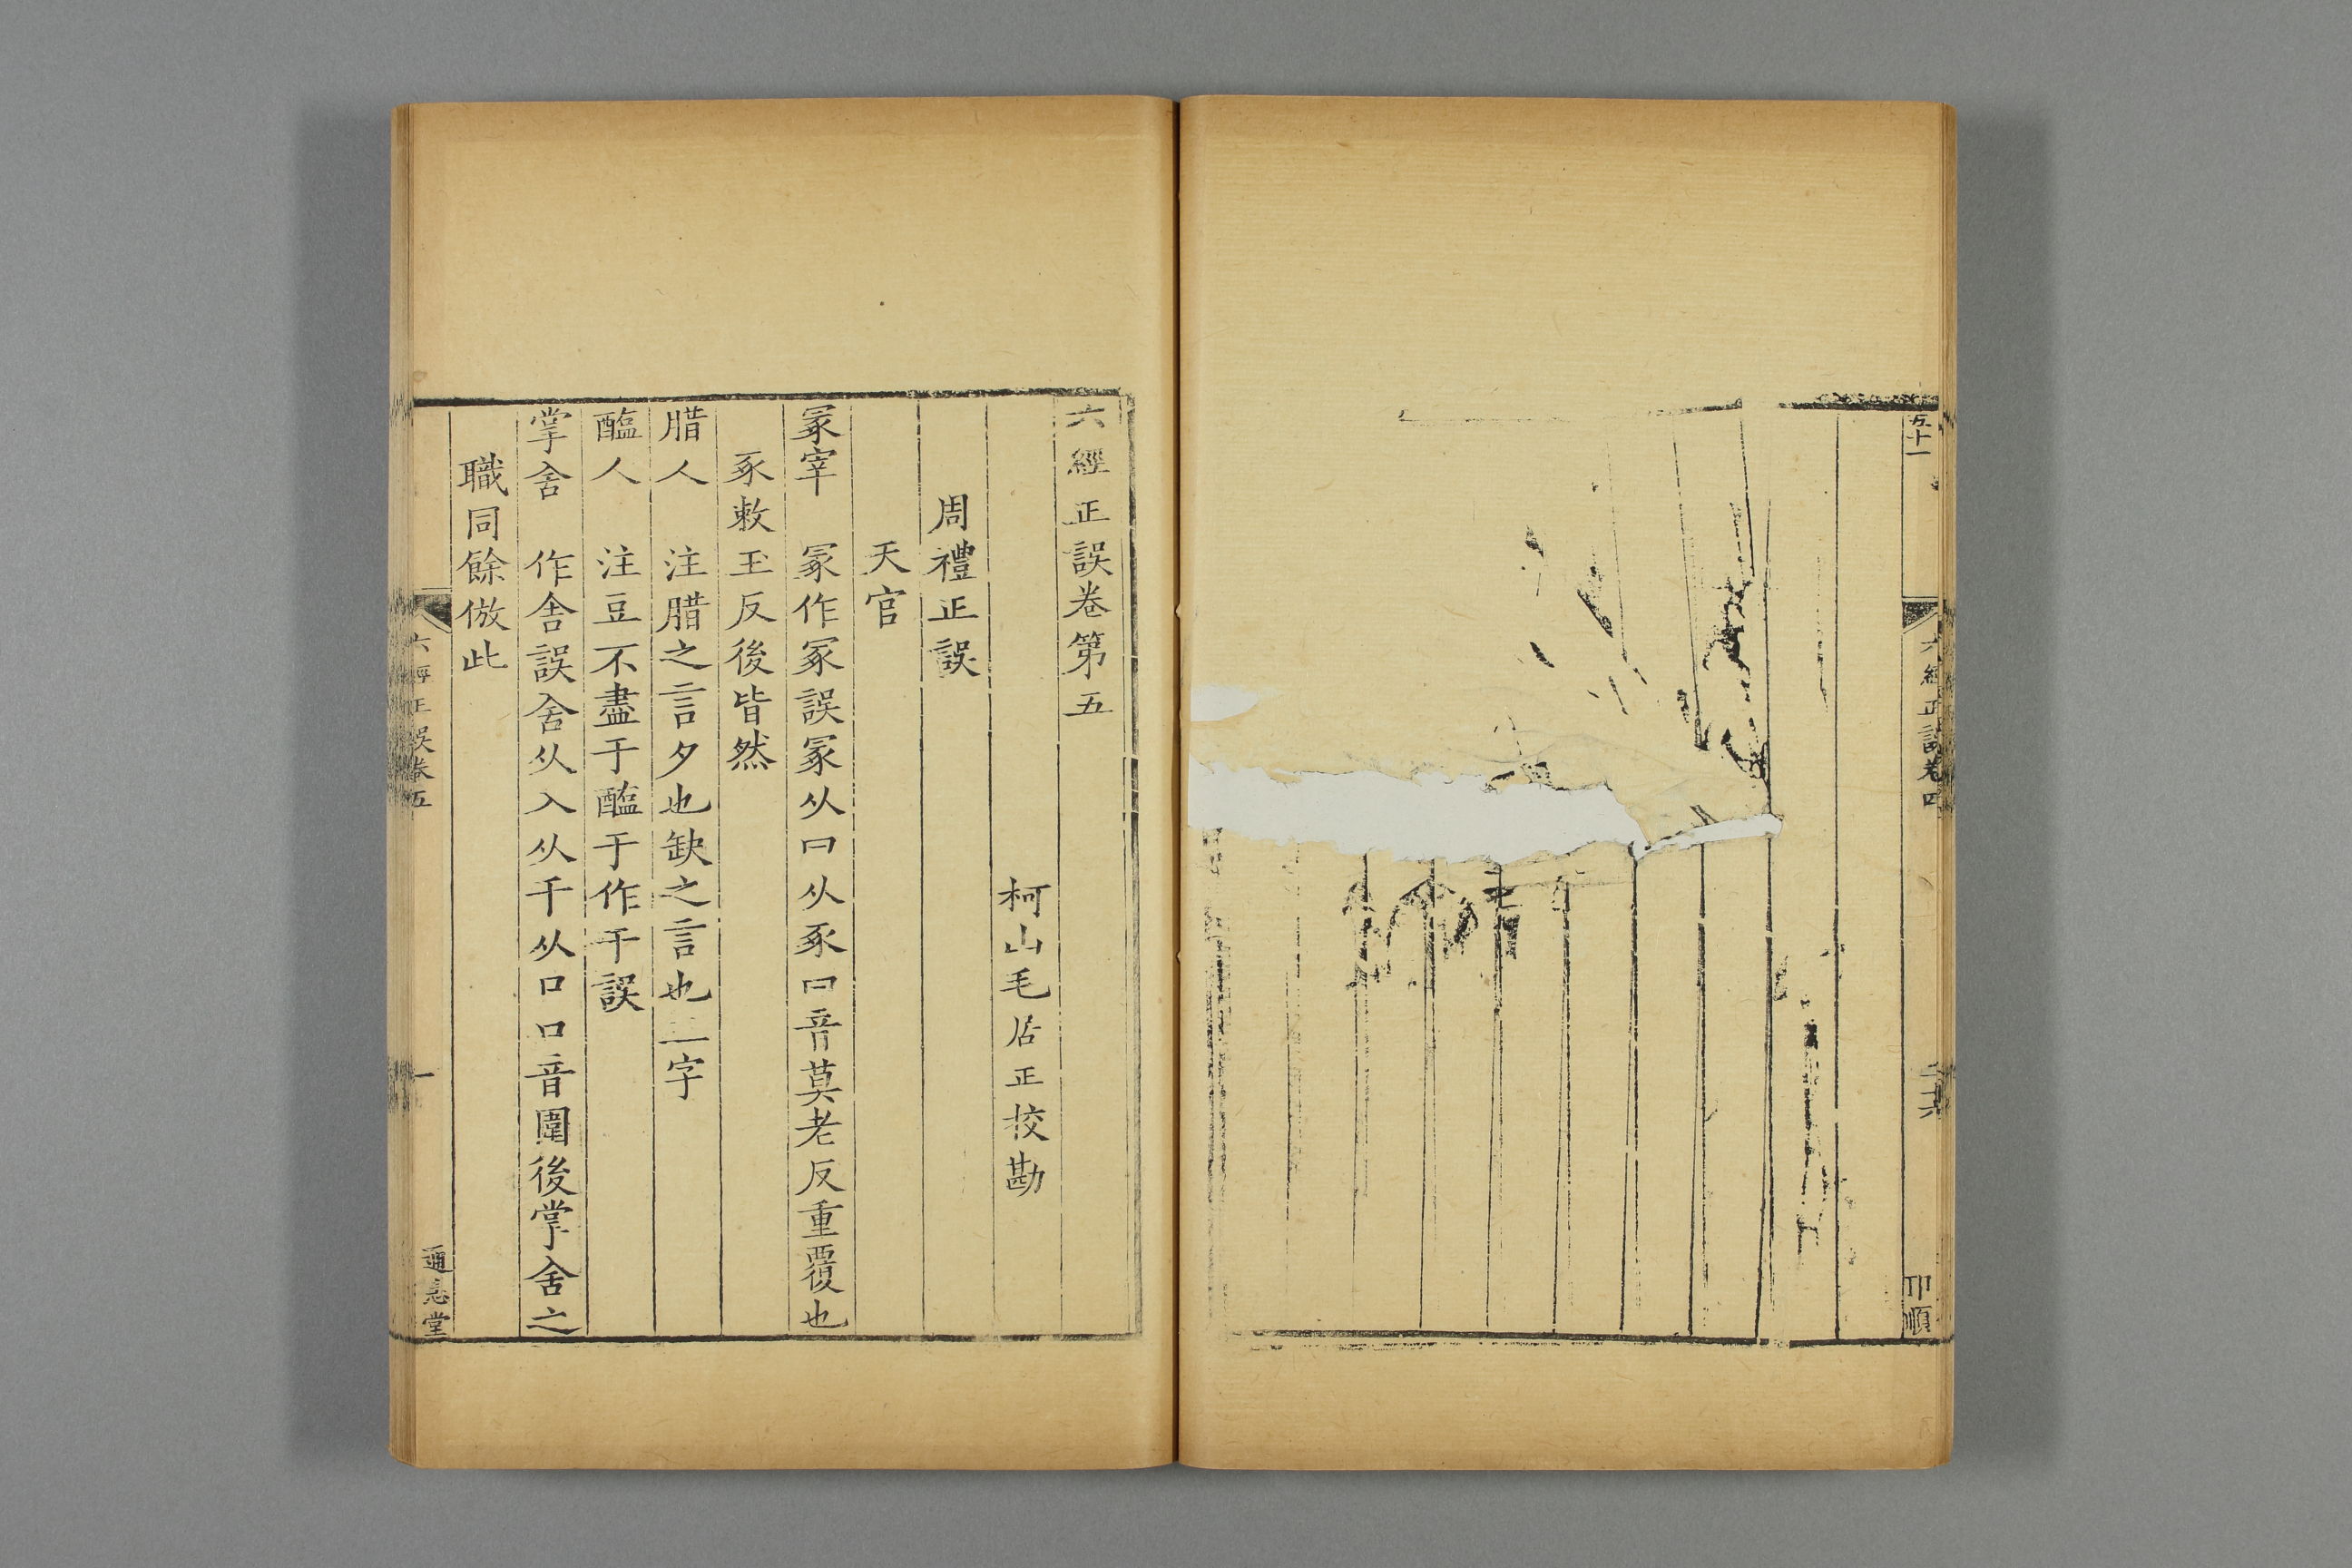 五十一
六經正誤卷四
卬順
六經正誤卷第五
柯山毛居正挍勘
周禮正誤
天官
冡宰　冡作冢誤冡从冃从豕冃音莫老反重覆也
豕敕玉反後皆然
腊人　注腊之言夕也缺之言也三字
醢人　注豆不盡于醢于作干誤
掌舍　作舎誤舍从入从干从口口音圍後掌舍之
職同餘倣此
六經正誤卷五
一
通志堂